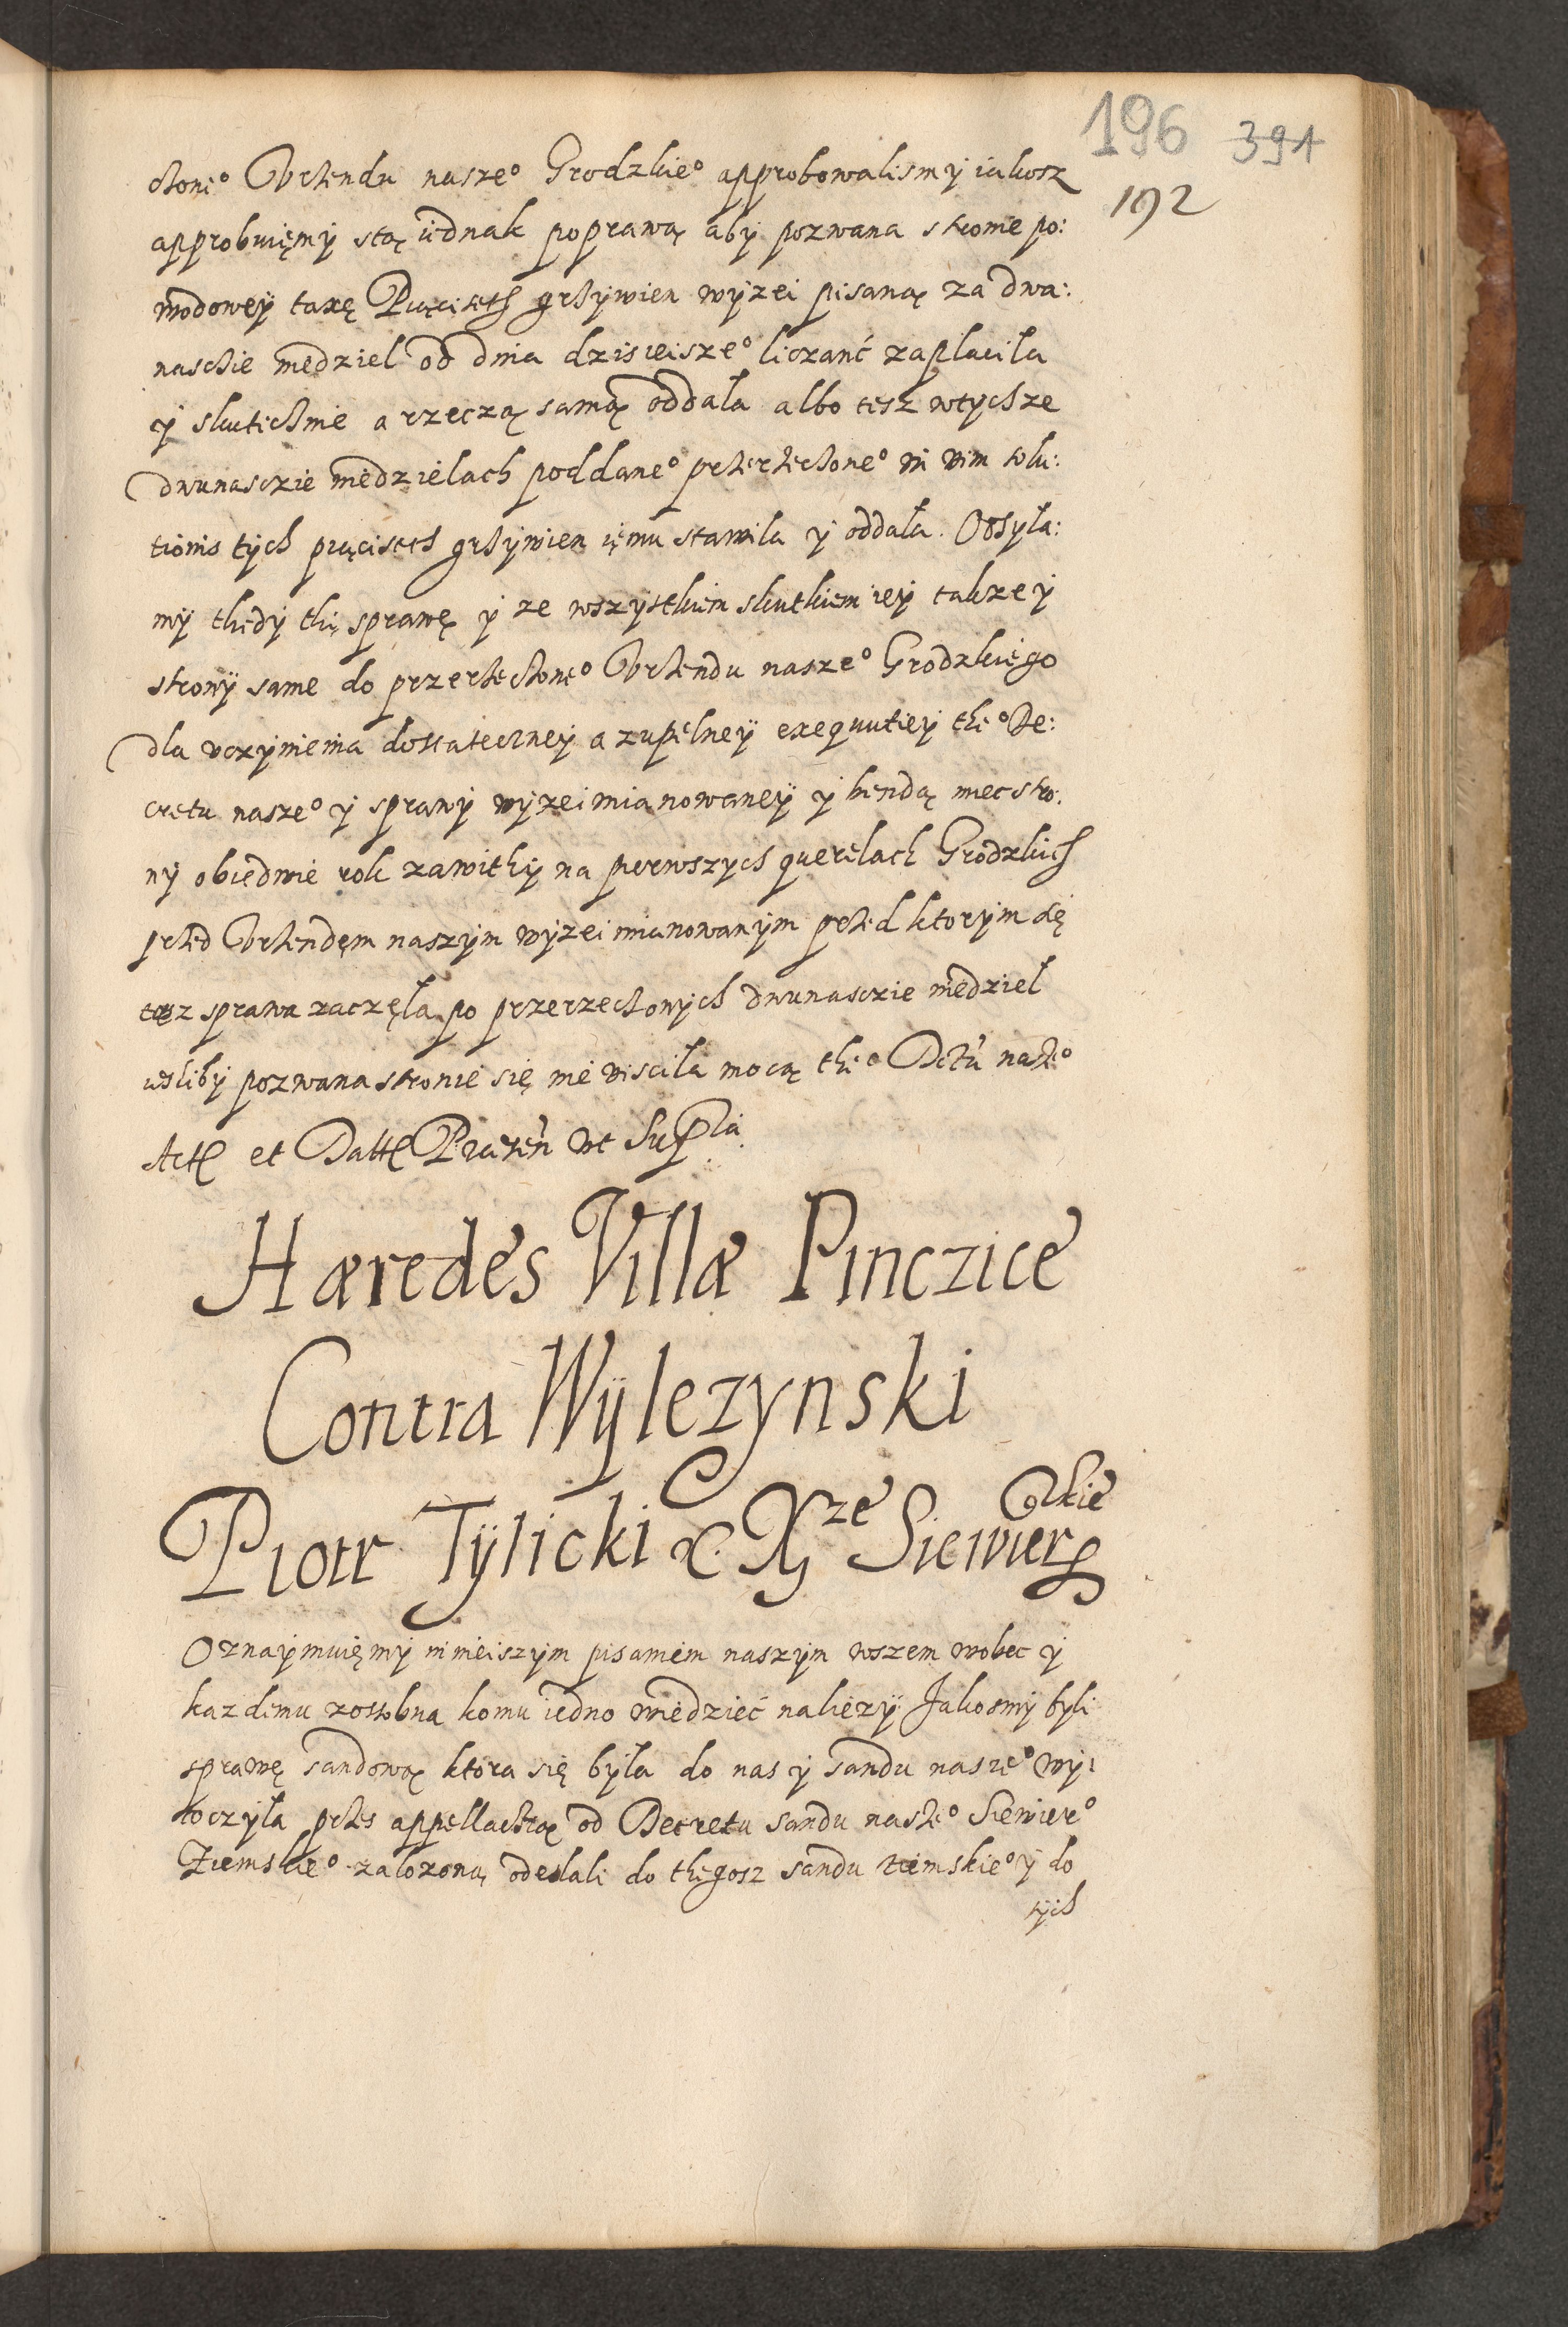 196 391
192
chone° Vrzendu nasze° Grodzkie° approbowalismy iakosz
approbuięmy stą iednak poprawą aby pozwana stronie po:
wodowey taxę Pięciseth grzywien wyzei pisaną za dwa:
nascie niedziel od dnia dzisieisze° liczanć zaplaciła
y skutichnie a rzeczą samą oddała albo tesz wtychze
dwunasczie niedzielach poddane° przerzechone° in vim solu:
tionis tych pięciseth grzywien iemu stawila y oddała. Odsyła:
my thedy thę sprawę y ze wszystkiem skutkiem iey takze y
strony same do przerzechone° Vrzendu nasze° Grodzkiego
dla vczynienia dostateczney a zupelney exequutiey the° De:
cretu nasze° y sprawy wyzei mianowaney y bendą miec stro:
ny obiedwie rok zawithy na pierwszych querelach Grodzkich
przed Vrzendęm naszym wyzei mianowanym przed ktorym się
taz sprawa zaczęła po przerzechonych dwunasczie niedziel
iesliby pozwana stronie się nie visciła mocą the° Dctu nasze°
Act et Datt Præsen vt Supra
Hæredes Villæ Pinczice
Contra Wylezynski
Piotr Tylicki &c. Xze Siewierskie
Oznaymuięmy ninieiszym pisaniem naszym wszem wobec y
kazdemu zossobna komu iedno wiedzieć nalezy Jakosmy byli
sprawę sandową ktora się była do nas y sandu nasze° wy:
toczyła przes appellacthą od Decretu sandu nasze° Siewier°
Ziemskie° zalozoną odesłali do thegosz sandu ziemskie° y do
tych